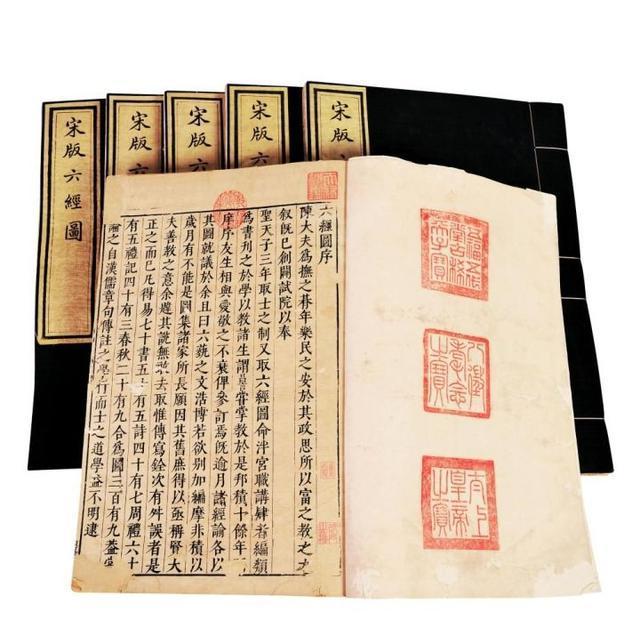 宋版六經圖
宋版六
宋版六
宋版六
宋版
六經圖序
陳大夫為撫之朞年樂民之安於其政思所以富之教之
敘既已創闢試院以奉
聖天子三年取士之制又取六經圖命泮宮職講肄者編類
為書刊之於學以教諸生謂嘗掌教於是邦積十餘年
庠序友生相與愛敬之不衰俾參訂焉既逾月諸經論各以
其圖就議於余且曰六藝之文浩博若欲別加編摩非積以
歲月有不能是圖集諸家所長願因其舊庶得以亟稱賢大
夫善教之意余韙其說無取去取惟傳寫銓次有舛誤者是
正之而已凡得易七十書五十有五詩四十有七周禮六十
有五禮記四十有三春秋二十有九合為圖三百有九蓋嘗
之自漢儒章句傳註之學行而士之道學益不明逮
五福五代堂古稀天子寶
八徵耄念之寶
太上皇帝之寶